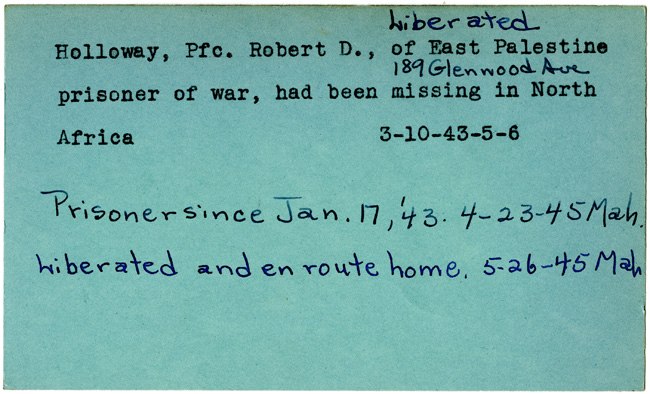 Liberated
Holloway, Pfc. Robert D., of East Palestine
189 Glenwood Ave
prisoner of war, had been missing in North
Africa 3-10-43-5-6
Prisoner since Jan. 17, '43. 4-23-45 Mah.
Liberated and en route home. 5-26-45 Mah